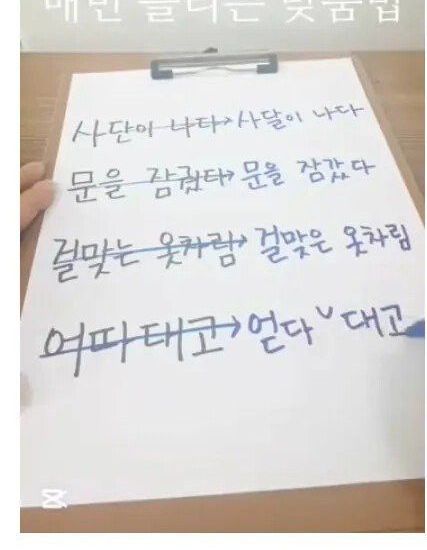 매번 틀리는 맞춤법
사단이 나다→사달이 나다
문을 잠궜다→문을 잠갔다
걸맞는 옷차림→걸맞은 옷차림
어따 대고→얻다∨대고